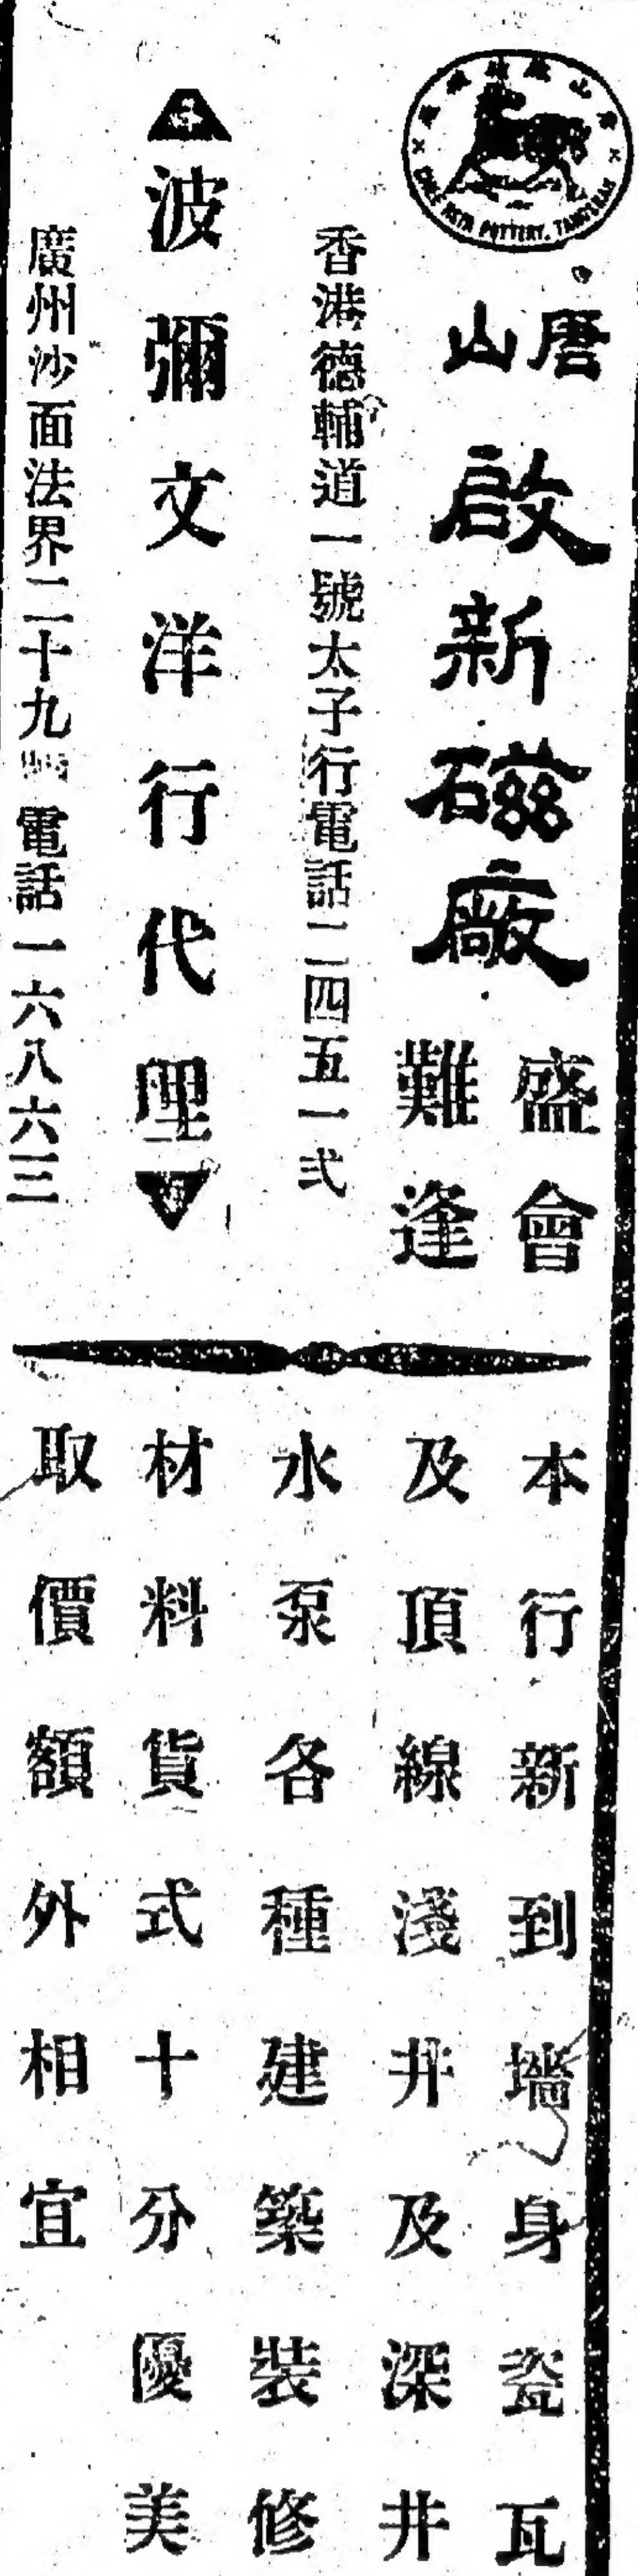 POTTERY, TANGSHAN
唐山
啟新磁廠
盛會
難逢
香港德輔道一號太子行電話二四五一弍
波彌文洋行代理
廣州沙面法界二十九 電話一六八六三
本行新到墻身瓷瓦
及頂線淺井及深井
水泵各種建築裝修
材料貨式十分優美
取價額外相宜